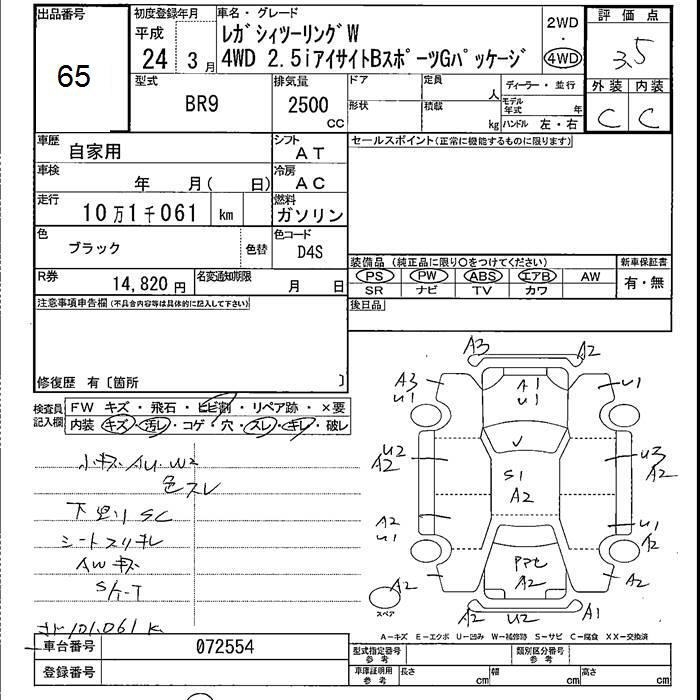 出品番号
65
初度登録年月
平成
24 3月
車名・グレード
レガシィツーリングW
4WD 2.5iアイサイトBスポーツGパッケージ
2WD
・
4WD
評価点
3.5
外装 内装
C C
型式
BR9
排気量
2500
CC
ドア
形状
定員
人
積載
kg
ディーラー・並行
モデル年式 年
ハンドル 左・右
車歴
自家用
シフト
AT
車検
年 月( 日)
冷房
AC
走行
10万1千061 km
燃料
ガソリン
色
ブラック
色替
色コード
D4S
R券
14,820 円
名変通知期限
月 日
セールスポイント(正常に機能するものに限ります)
装備品(純正品に限り○をつけてください)
PS PW ABS エアB AW
SR ナビ TV カワ
新車保証書
有・無
後日品
注意事項申告欄(不具合内容等は具体的に記入して下さい)
修復歴 有〔箇所 〕
検査員記入欄
FW キズ・飛石・ヒビ割・リペア跡・×要
内装 キズ・汚レ・コゲ・穴・スレ・キレ・破レ
小キズ AU.W2
色スレ
下廻リ SC
シートスリキレ
AWキズ
S/T-T
101,061 K
A3 A2
A3 U1
A1 U1
U1
U2 A2
S1 A2
U3 A2
A2 U1
U1 A2
A2
A2
A2
A2 U2 A1
スペア
A-キズ E-エクボ U-凹み W-補修跡 S-サビ C-腐食 XX-交換済
車台番号
072554
登録番号
型式指定番号 参考
類別区分番号 参考
車庫証明用 参考
長さ cm
幅 cm
高さ cm